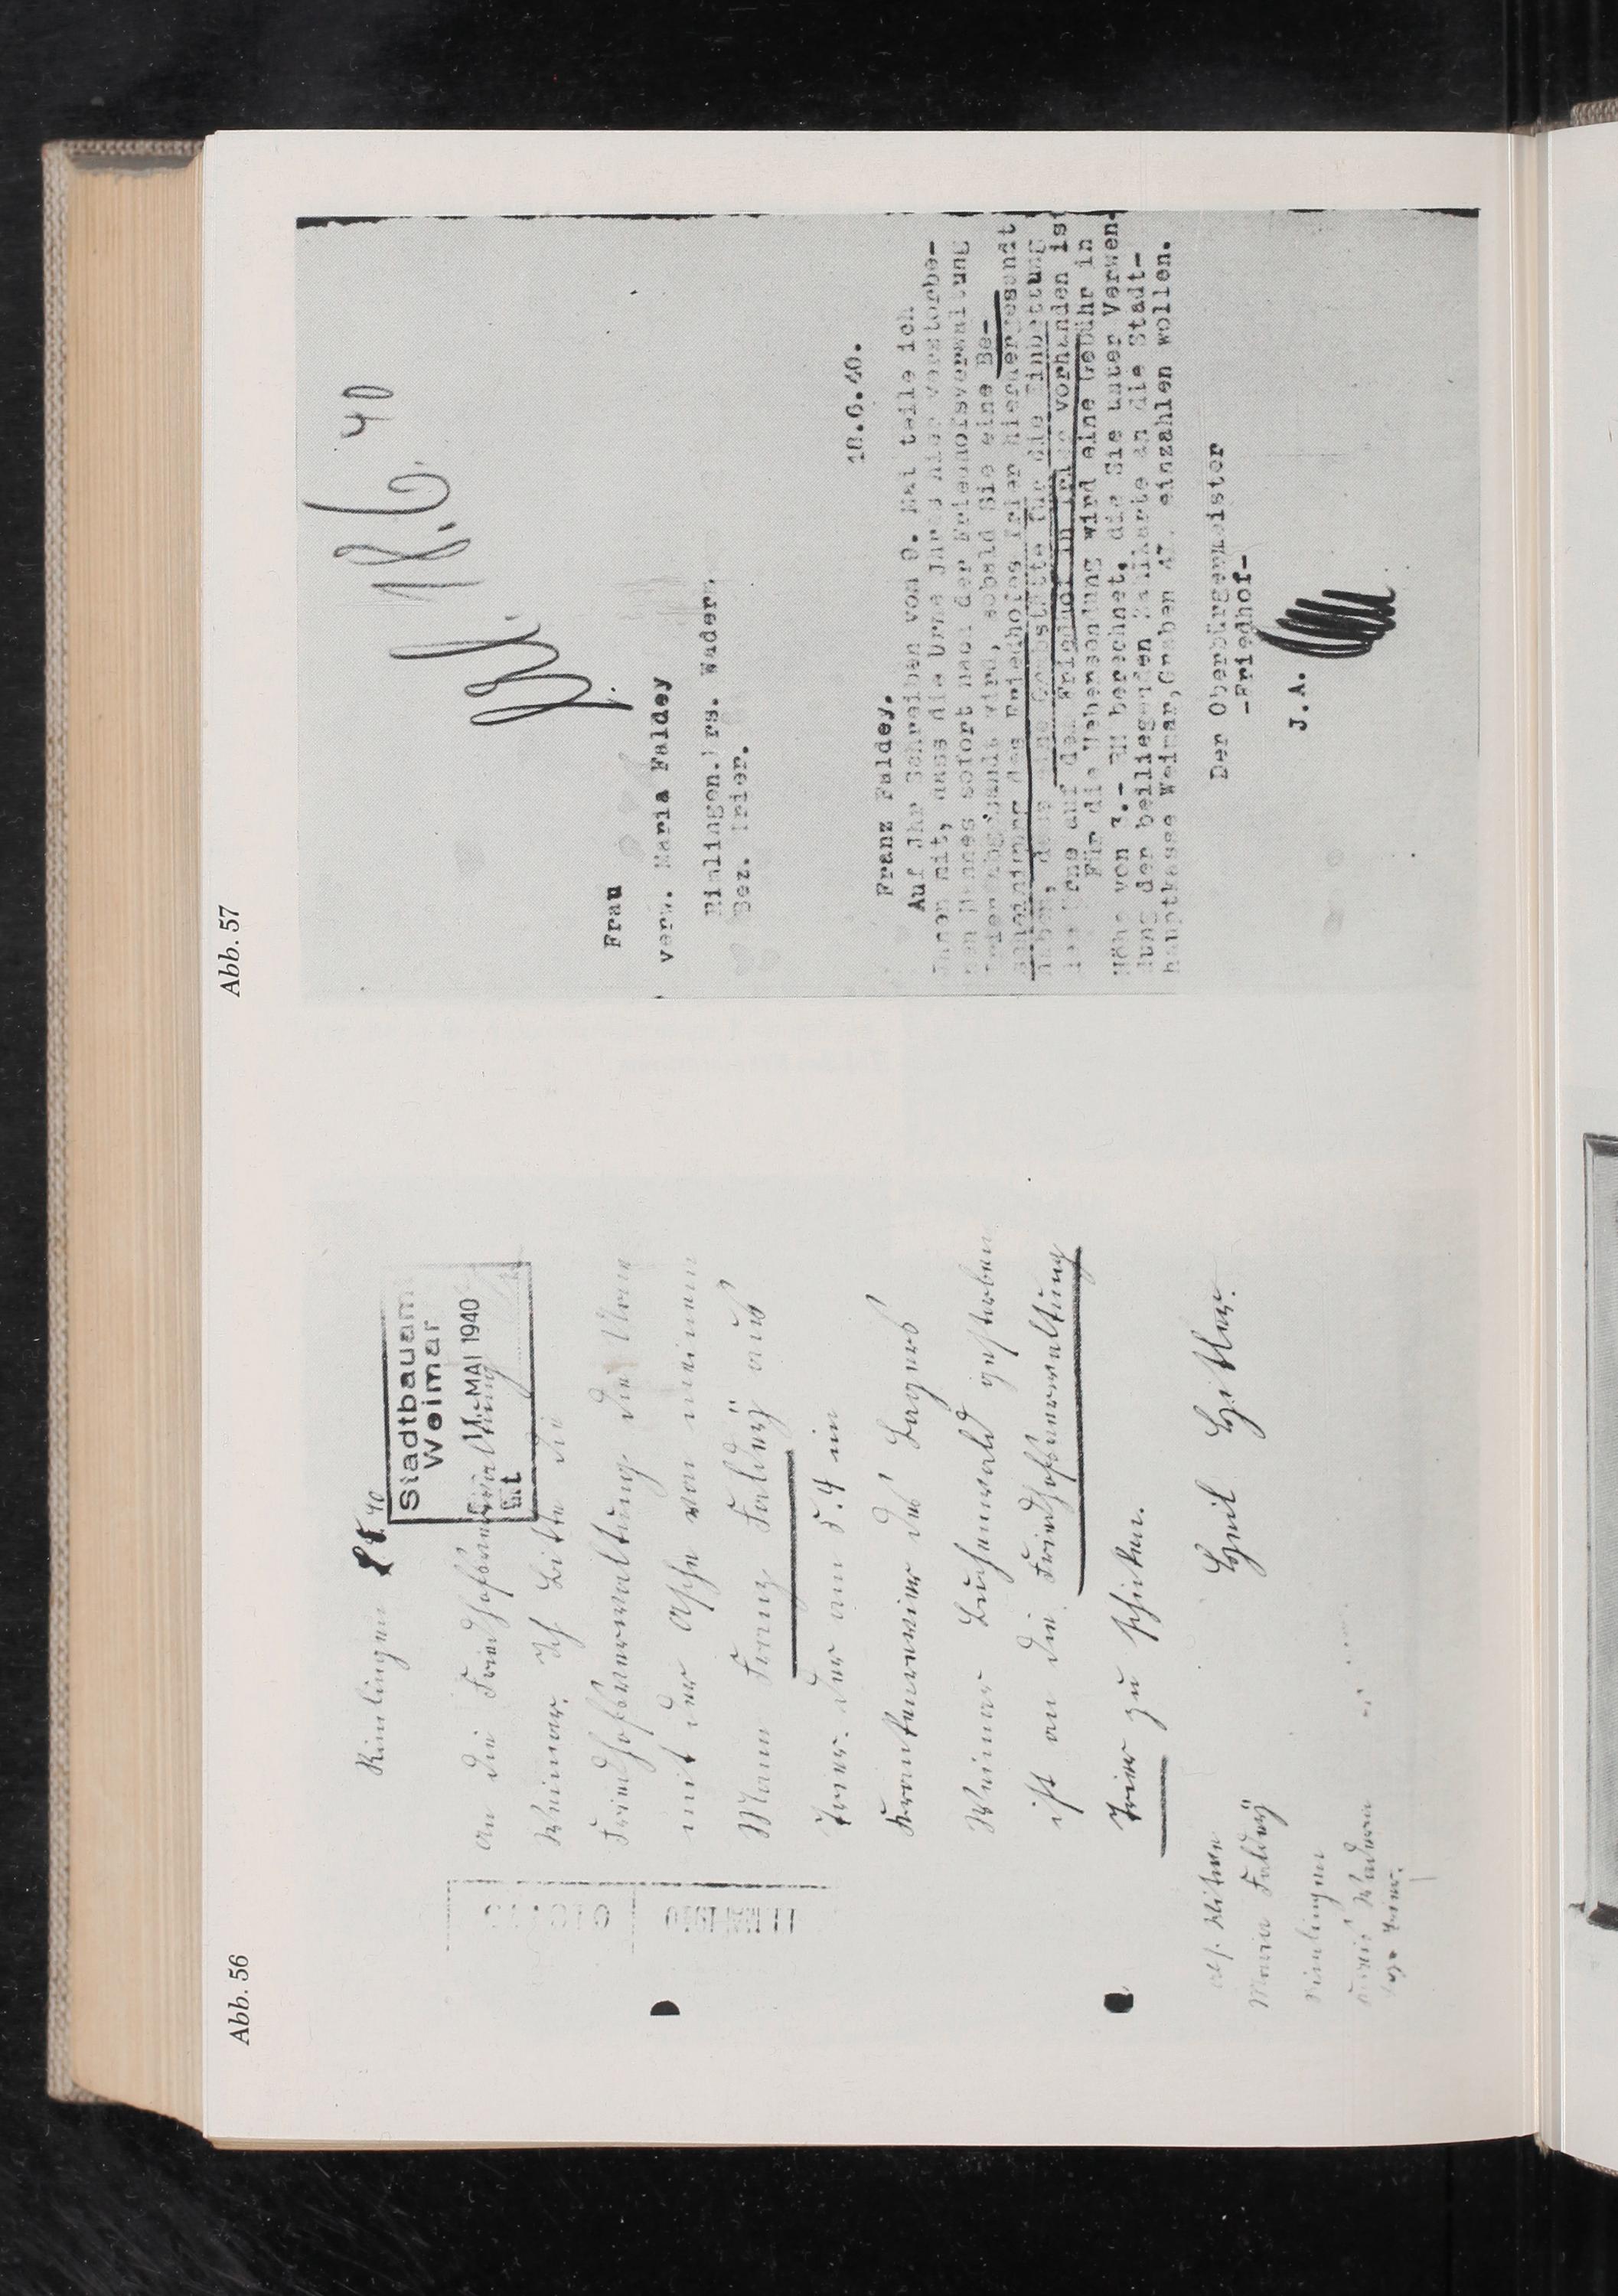 Abb. 56
Rimlingen
40
Stadtbauam
Weimar
11. MAI 1940
An die Friedhofsverwaltung
Weimar. Ich bitte die
Friedhofsverwaltung die Urne
mit der Asche von meinem
Mann Franz Faldeÿ aus
Trier. der am 5.4 im
Krankenrevier des Lagers
Weimar Buchenwald gestorben
ist an die Friedhofsverwaltung
Trier zu schicken.
Heil Hitler.
Abs. Witwe
Maria Faldeÿ
Rimlingen
Kreis Wadern
Bz. Trier.
11 MAI 1940
Abb. 57
18.6. 40
Frau
verw. Maria Faldey
Rimlingen.Krs. Wadern
Bez. Trier.
18.6.40.
Franz Faldey.
Auf Jhr Schreiben vom 9. Mai teile ich
Jhnen mit, dass die Urne Jhres hier verstorbe-
nen Mannes sofort nach der Friedhofsverwaltung
Trier abgesandt wird, sobald Sie eine Be-
scheinigung des Friedhofes Trier hierhergesandt
haben, dass eine Grabstätte für die Einbettung
der Urne auf dem Friedhof in Trier vorhanden ist
Für die Uebersendung wird eine Gebühr in
Höhe von 3.- RM berechnet, die Sie unter Verwen-
dung der beiliegenden Zahlkarte an die Stadt-
hauptkasse Weimar,Graben 47, einzahlen wollen.
Der Oberbürgermeister
-Friedhof-
J.A.